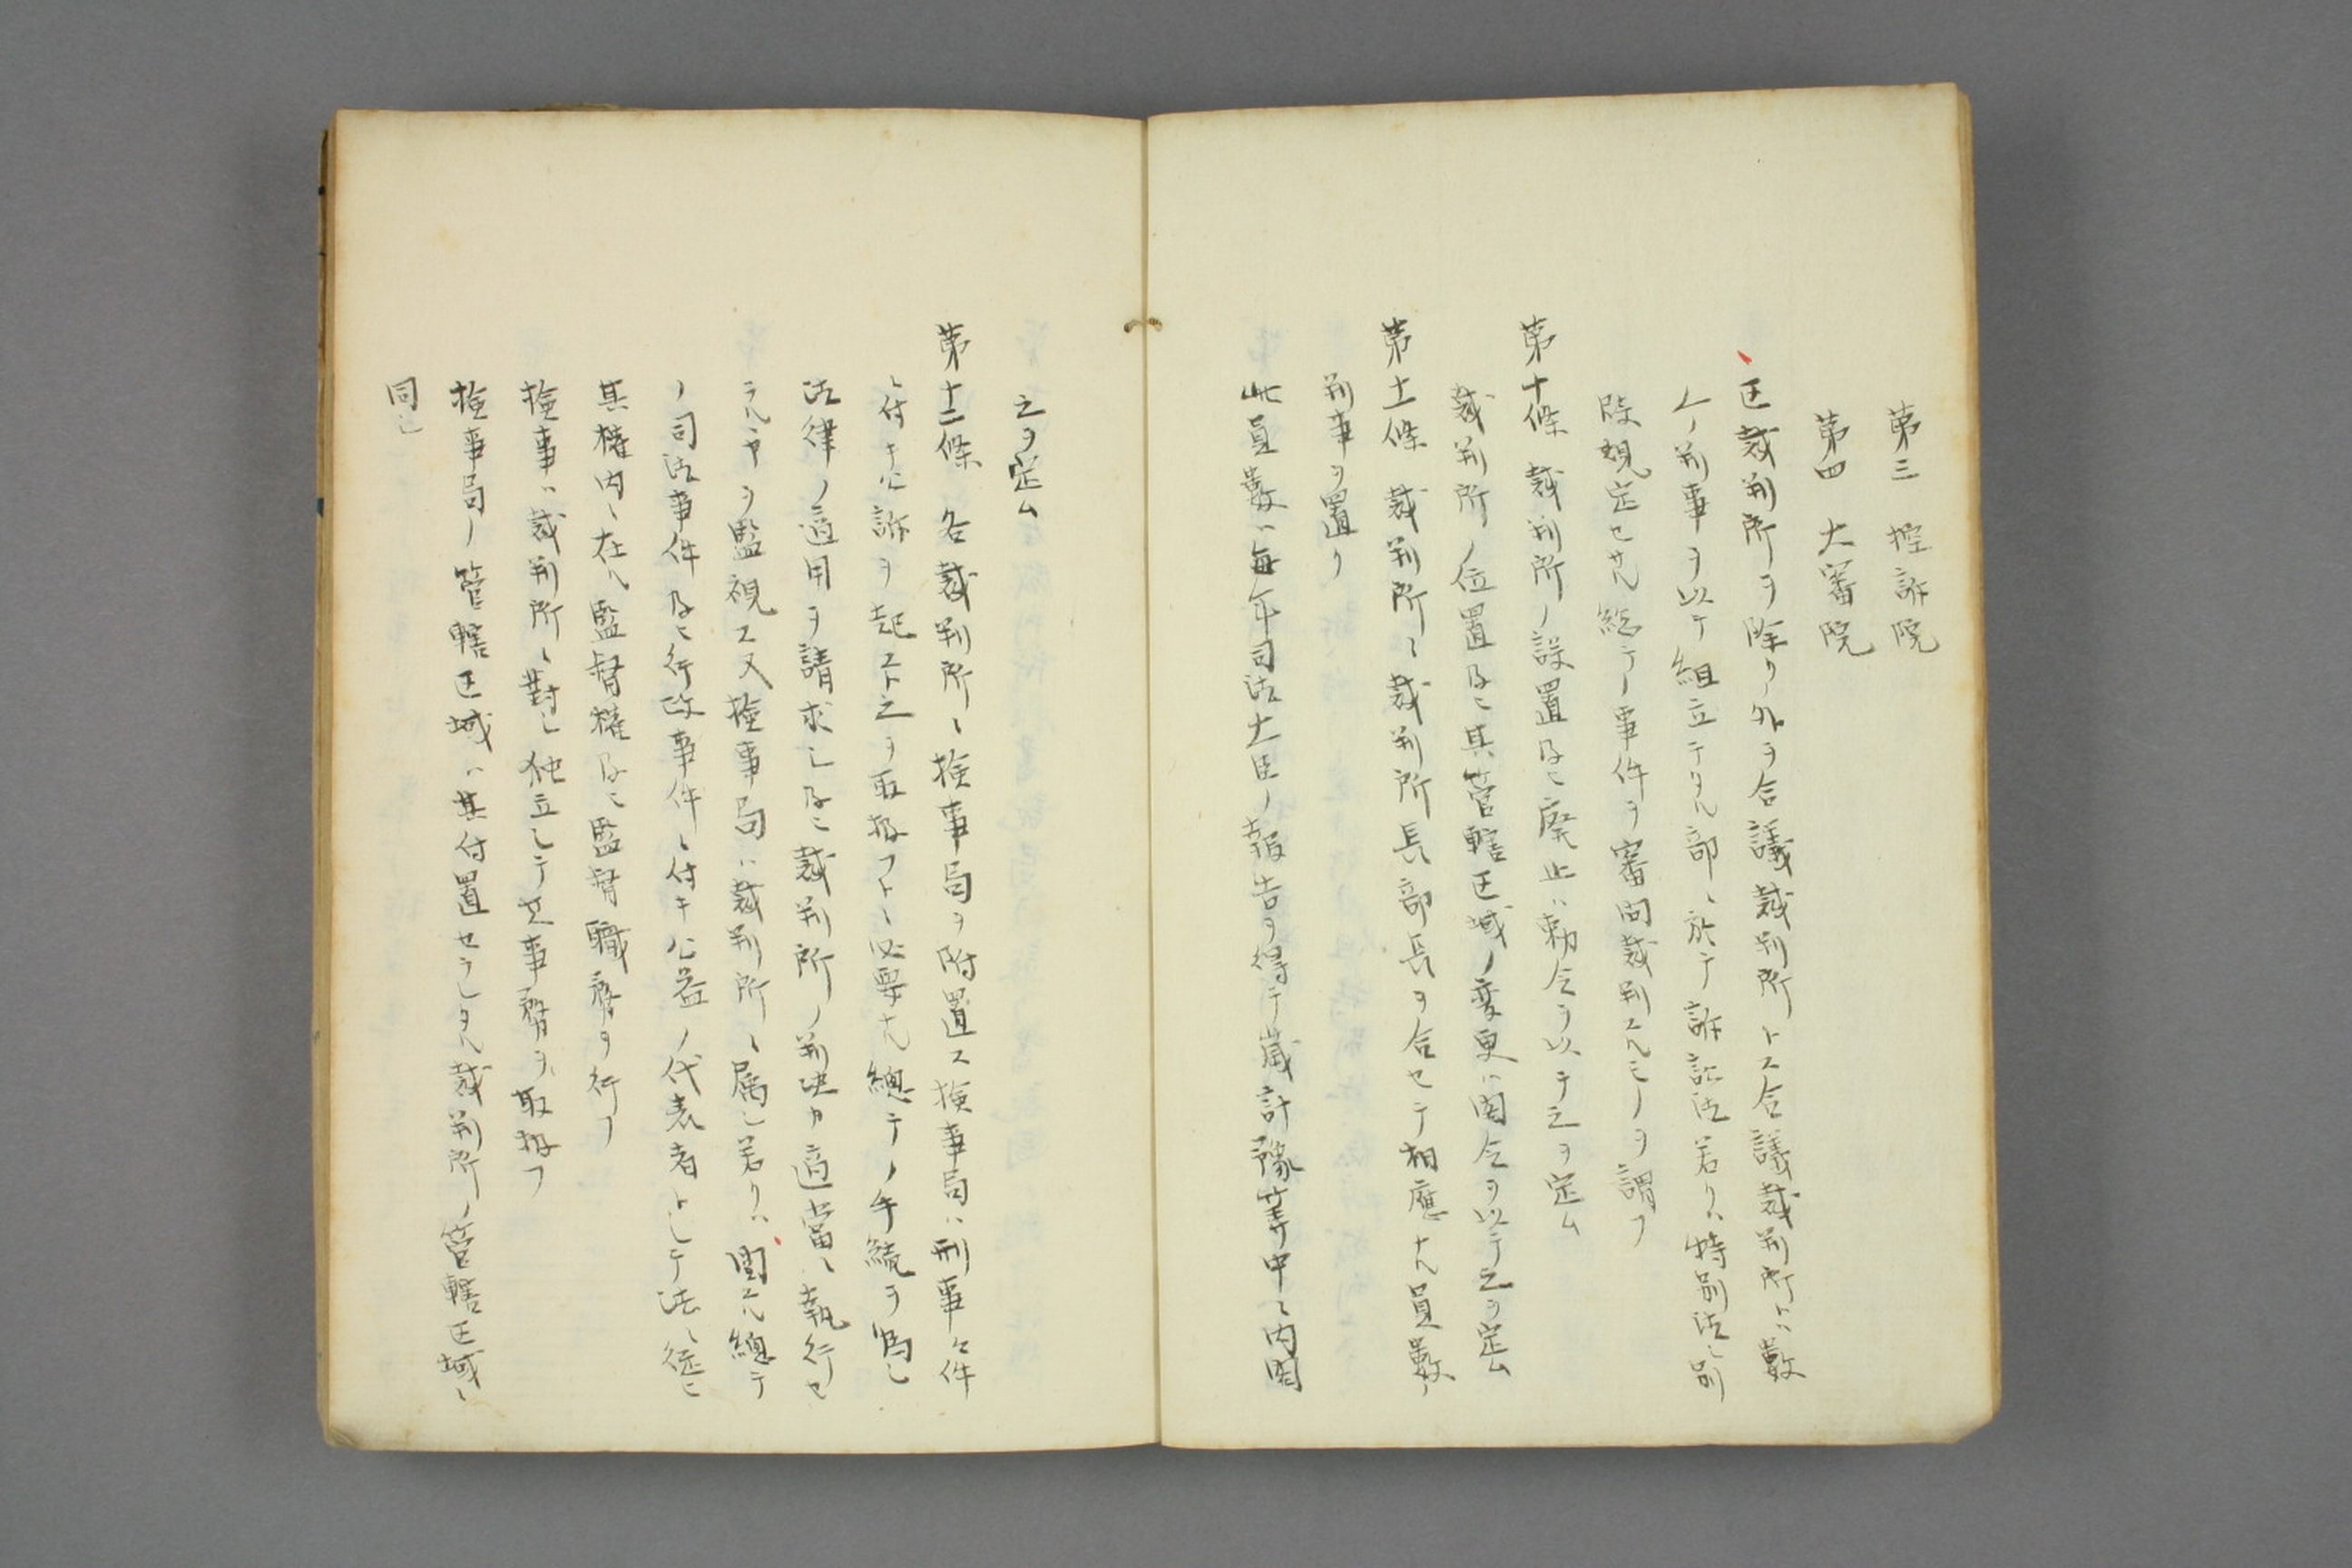 第三 控訴院
第四 大審院
区裁判所ヲ除ク外ヲ合議裁判所トス合議裁判所トハ數
人ノ判事ヲ以テ組立テタル部ニ於テ訴訟法若クハ特別法ニ別
段規定セサル総テノ事件ヲ審問裁判スルモノヲ謂フ
第十條 裁判所ノ設置及ヒ廃止ハ勅令ヲ以テ之ヲ定ム
裁判所ノ位置及ヒ其管轄区域ノ変更ハ閣令ヲ以テ之ヲ定ム
第十一條 裁判所ニ裁判所長部長ヲ合セテ相應ナル員數ノ
判事ヲ置ク
此員數ハ毎年司法大臣ノ報告ヲ得テ歳計豫筭中ニ内閣
之ヲ定ム
第十二條 各裁判所ニ検事局ヲ附置ス検事局ハ刑事々件
ニ付キ公訴ヲ起スト之ヲ取扱フトニ必要ナル總テノ手続ヲ為シ
法律ノ適用ヲ請求シ及ヒ裁判所ノ判决カ適當ニ執行セ
ラルヽヤヲ監視ス又検事局ハ裁判所ニ属シ若クハ関スル總テ
ノ司法事件及ヒ行政事件ニ付キ公益ノ代表者トシテ法ニ従ヒ
其権内ニ在ル監督権及ヒ監督職務ヲ行フ
検事ハ裁判所ニ對シ独立シテ其事務ヲ取扱フ
検事局ノ管轄区域ハ其付置セラレタル裁判所ノ管轄区域ニ
同シ